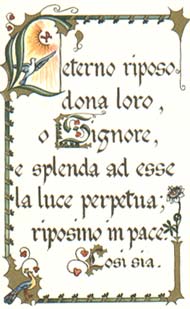 L'eterno riposo
dona loro,
o Signore,
e splenda ad esse
la luce perpetua;
riposino in pace.
Così sia.